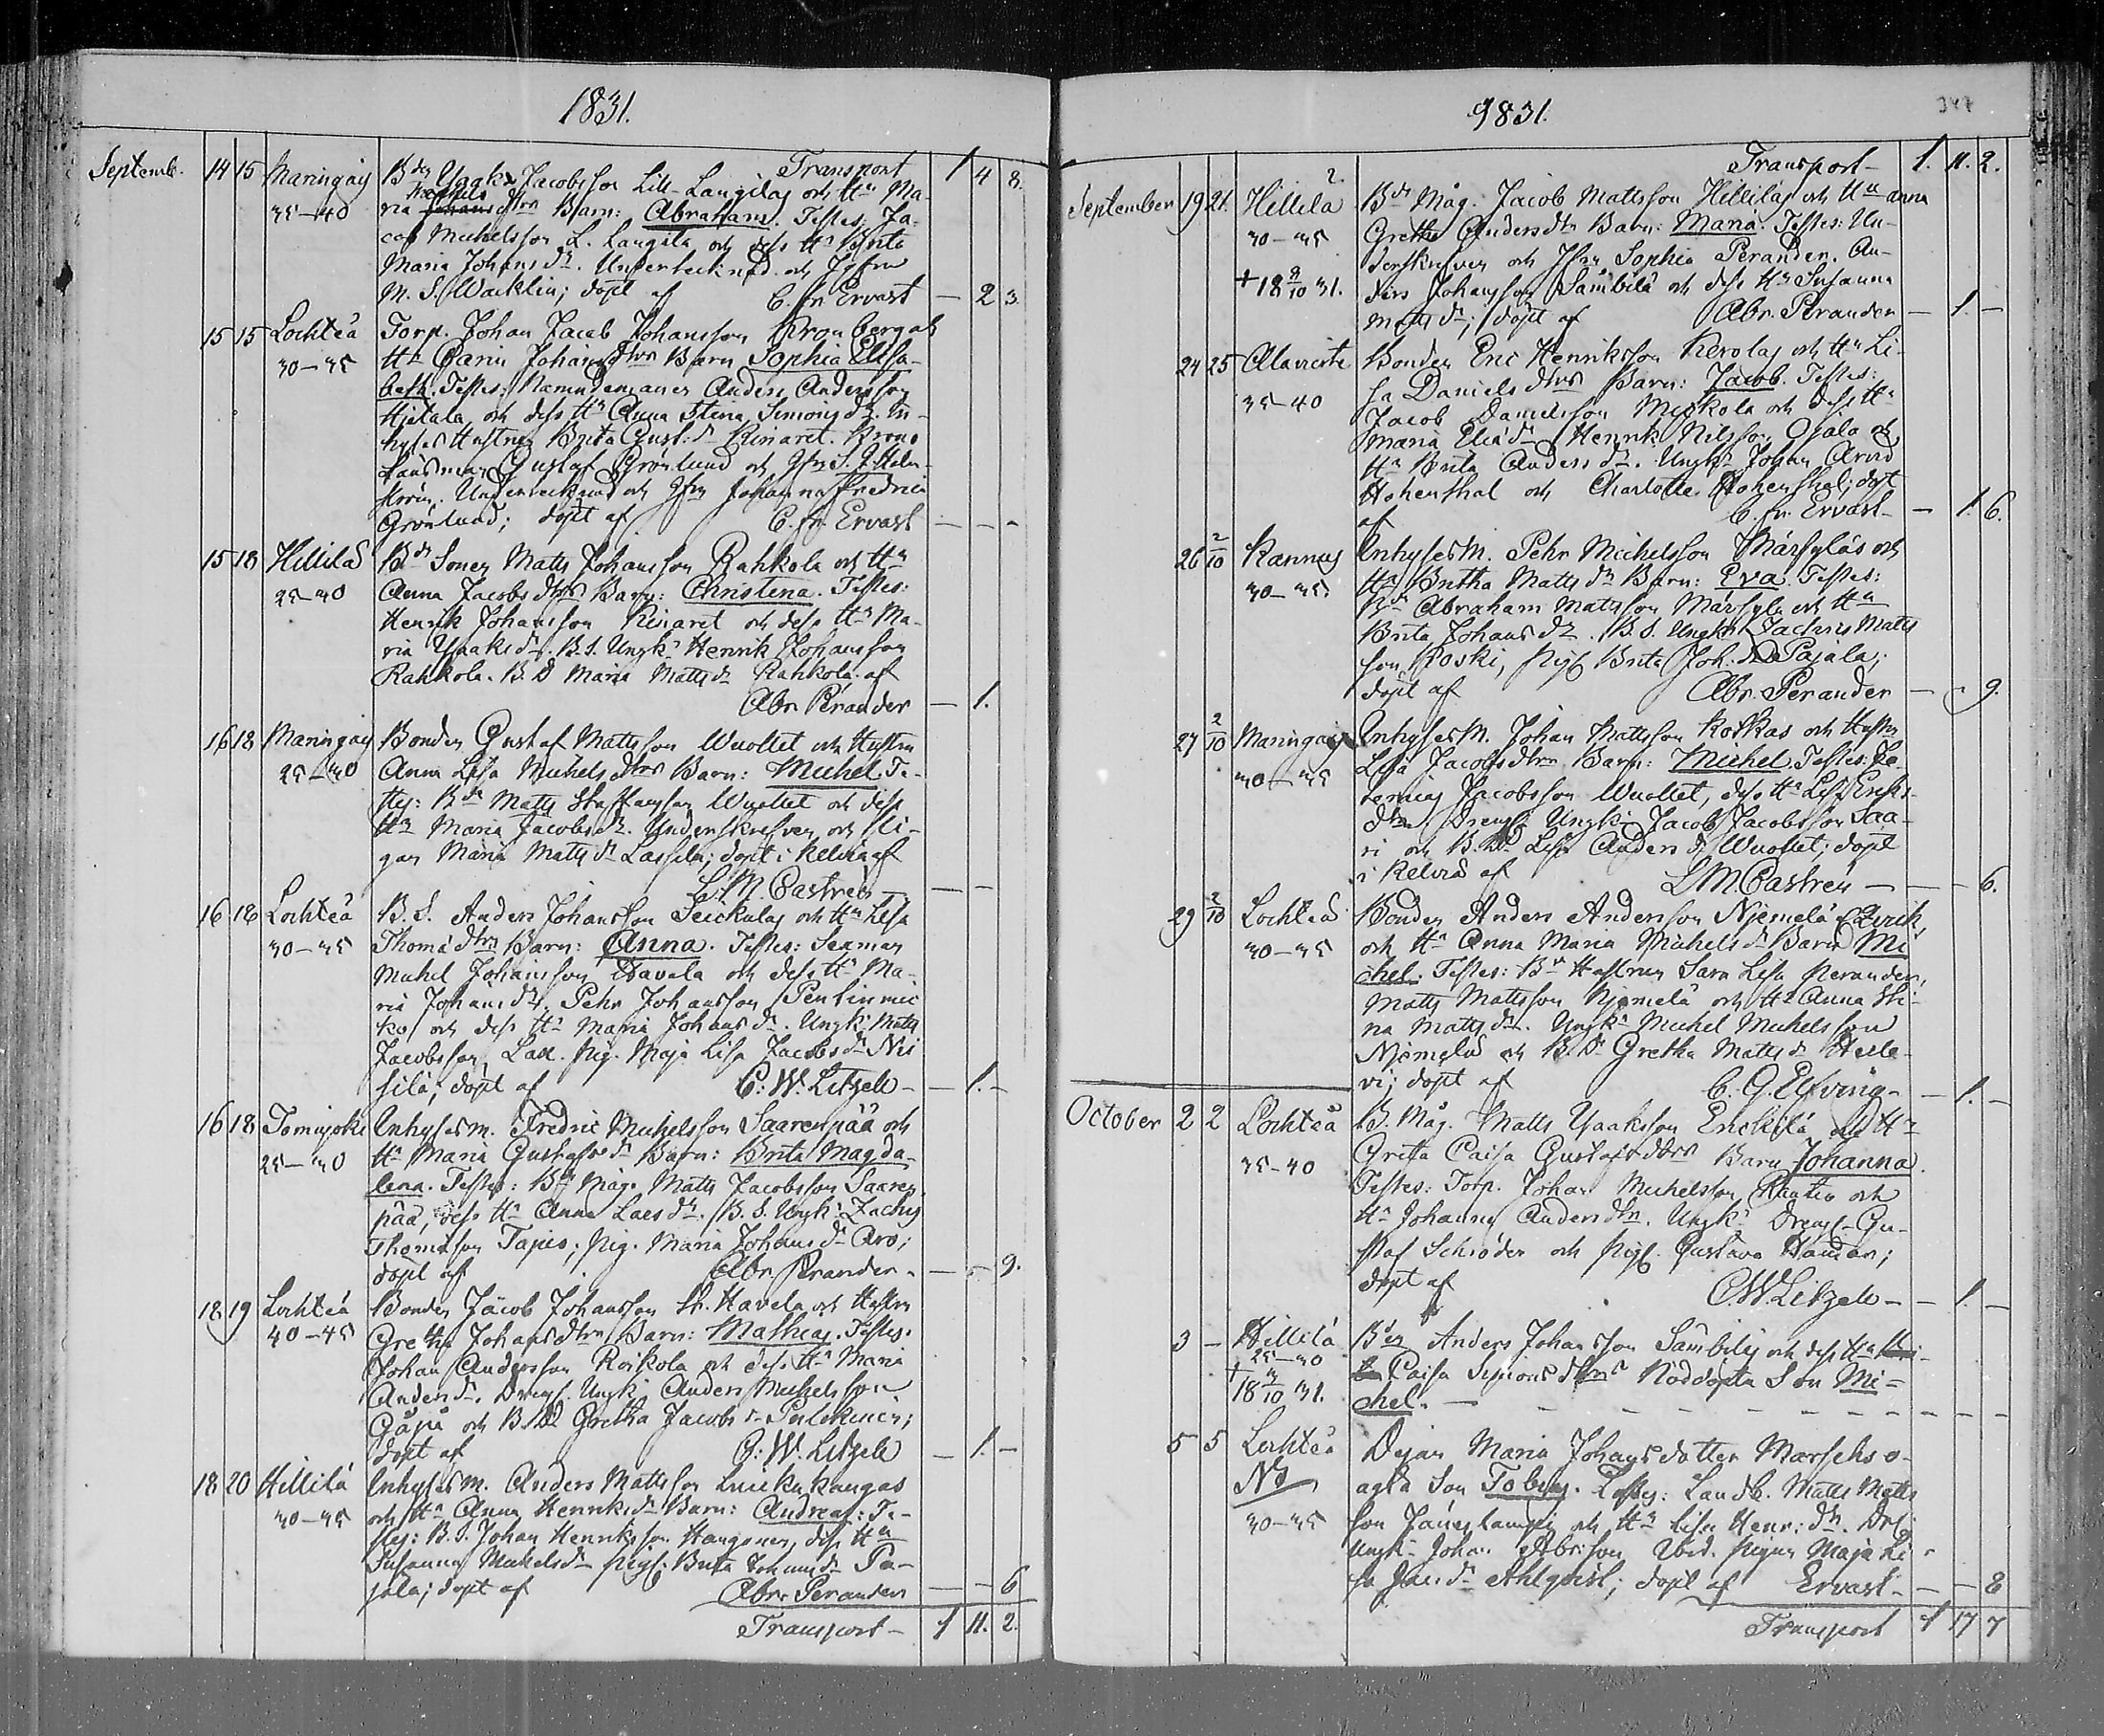 1831.
Septemb. 14 15 Maringais Bdn Isaks Jacobsson Lill-Langilas och Hu Ma- Transport 1 4 8.
35-40 ria Barn: Abraham. Testes: Ja-
cob Michelsson L. Langila och dess Hu Brita
Maria Johans dr. Undertecknad och Jgfrun
M. S. Wacklin; döpt af C. Fr. Ervast - 2 3.
15 15 Lochteå Torp. Johan Jacob Johansson Kronberg och
30-35 Hu Carin Johans dtrs Barn Sophia Elisa-
beth. Testes: Nämndemannen Anders Andersson
Hjetala och dess Hu Anna Stina Simons dr. In-
hyses Hustrun Brita Gust: dr Rinaret. Krono
Länsman Gustaf Grönlund och Jfr S. J. Holm-
ström. Undertecknad och Jfr Johanna Fredrica
Grönlund; döpt af C. Fr. Ervast - - -
15 18 Hillilä Bd Sonen Matts Johansson Rahkola och Hu
25-30 Anna Jacobs dtrs Barn: Christina. Testes:
Henrik Johansson Rinaret och dess Hu Ma-
ria Isaks dr. B.S. Ungk: Henrik Johansson
Rahkola. B.D Maria Matts dr Rahkola. af
Abr. Perander - 1.
16 18 Maringais Bonden Gustaf Mattsson Wuollet och Hustrun
25-30 Anna Lisa Michels dtrs Barn: Michel. Te-
stes: Bdn Matts Staffansson Wuollet och dess
Hu Maria Jacobs dr. Underskrefven och Pi-
gan Maria Matts dr Lassila; döpt i Kelviå af
L. M. Castrén - -
16 18 Lochteå B. S. Anders Johansson Seickulas och Hu Lisa
30-35 Thomä dtrs Barn: Anna. Testes: Sexman
Michel Johansson Havela och dess Hu Ma-
ria Johans dr. Pehr Johansson Pentinmic
ko och dess Hu Maria Johans dr. Ungk: Matts
Jacobsson Lax. pig. Maja Lisa Jacobs dr Nis
silä; döpt af C. W. Litzelo - 1. -
16 18 Tomujoki Inhyses m. Fredric Michelsson Saarenpää och
25-30 Hu Maria Gustafs dr Barn: Brita Magda-
lena. Testes: Bd Måg. Matts Jacobsson Saaren
pää, dess Hu Anna Lars dr. B.S. Ungk: Zachris
Thomasson Tapio. pig. Maria Johans dr Aro;
döpt af Abr. Perander - - - 9.
18 19 Lochteå Bonden Jacob Johansson St. Havela och Hustrun
40-45 Gretha Johans dtrs Barn: Mathias. Testes:
Johan Andersson Roikola och dess Hu Maria
Anders dr. Dreng. Ungk: Anders Michelsson
Gåpå och B.D Gretha Jacobs dr Pulckinen;
döpt af C. W. Litzelo - 1. -
18 20 Hillilä Inhyses m. Anders Mattsson Luickukangas
30-35 och Hu Anna Henriks dr Barn: Andreas: Te-
stes: B.S. Johan Henriksson Haugonen, dess Hu
Susanna Michels dr pig. Brita Johans dr Pa-
jala; döpt af Abr. Perander - - 6
Transport - 1 11. 2.
9831.
347
Transport - 1. 11. 2.
September 19 21. Hillilä Bds Måg. Jacob Mattsson Hillilä och Hu Anna
30-35 Gretha Anders dtr Barn: Maria. Testes: Un-
derskrefven och Jfru Sophia Perander. An-
+ 18 8/10 31. ders Johansson Sämbilä och dess Hu Susanna
Matts dr; döpt af Abr. Perander - 1. -
24 25 Alaviirte Bonden Eric Henriksson Kerolas och Hu Li-
35-40 sa Daniels dtrs Barn: Jacob. Testes:
Jacob Danielsson Myskola och dess Hu
Maria Eliä dr. Henrik Nilsson Ojala och
Hu Brita Anders dr. Ungk: Johan Arvid
Hohenthal och Charlotte Hohenthal; döpt
af C. Fr. Ervast - 1. 6.
26 2/10 Kannus Inhyses m. Pehr Michelsson Märsyläs och
30-35. Hu Britha Matts dr Barn: Eva. Testes:
Bdn Abraham Mattsson Märsylä och Hu
Brita Johans dr. B.S. Ungk: Zachris Matts
son Koski, pig. Brita Joh. dr Pajala;
döpt af Abr. Perander - - 9.
27 2/10 Maringais Inhyses m. Johan Mattsson Koskas och Hustru
30-35 Lisa Jacobs dtrs Barn: Michel. Testes: Je-
remias Jacobsson Wuollet, dess Hu Lisa Erichs
dtr. Dreng. Ungk: Jacob Jacobsson Saa-
ri och B.D. Lisa Anders dr Wuollet; döpt
i Kelviå af L M Castrén - - - 6.
29 2/10 Lochteå Bonden Anders Andersson Njemelä
30-35 och Hu Anna Maria Michels dr Barn Mi
chel. Testes: Bd Hustrun Sara Lisa Perander,
Matts Mattsson Njemelä och Hu Anna Sti-
na Matts dr. Ungk: Michel Michelsson
Njemelä och B.D. Gretha Matts dr Helle-
vi; döpt af C. G. Elfving - - 1. -
October 2 2 Lochteå B. Måg. Matts Isaksson Erickilä och Hu
35-40 Greta Caisa Gustafs dtrs Barn Johanna.
Testes: Torp. Johan Michelsson Rautio och
Hu Johanna Anders dtr. Ungk: Dreng Gu-
staf Schröder och pig. Gustava Håndar;
döpt af C. W. Litzelo - - 1. -
3 - Hillilä Bdn Anders Johansson Sämbilä och dess Hu
25-30 Caisa Simons dtrs Nöddöpta Son Mi-
+ 18 3/10 31. chel. - - - - - - -
5 5 Lochteå Pigan Maria Johansdotter Marsehs o-
No ägta Son Tobias. Testes: Landb. Matts Matts
30-35 son Jäneslampi och Hu Lisa Henr: dr. Dr.
Ungk: Johan Abr:son Ibid. pigan Maja Li
sa Jac. dr Ahlqvist; döpt af Ervast - - - 8
Transport 1 17 7